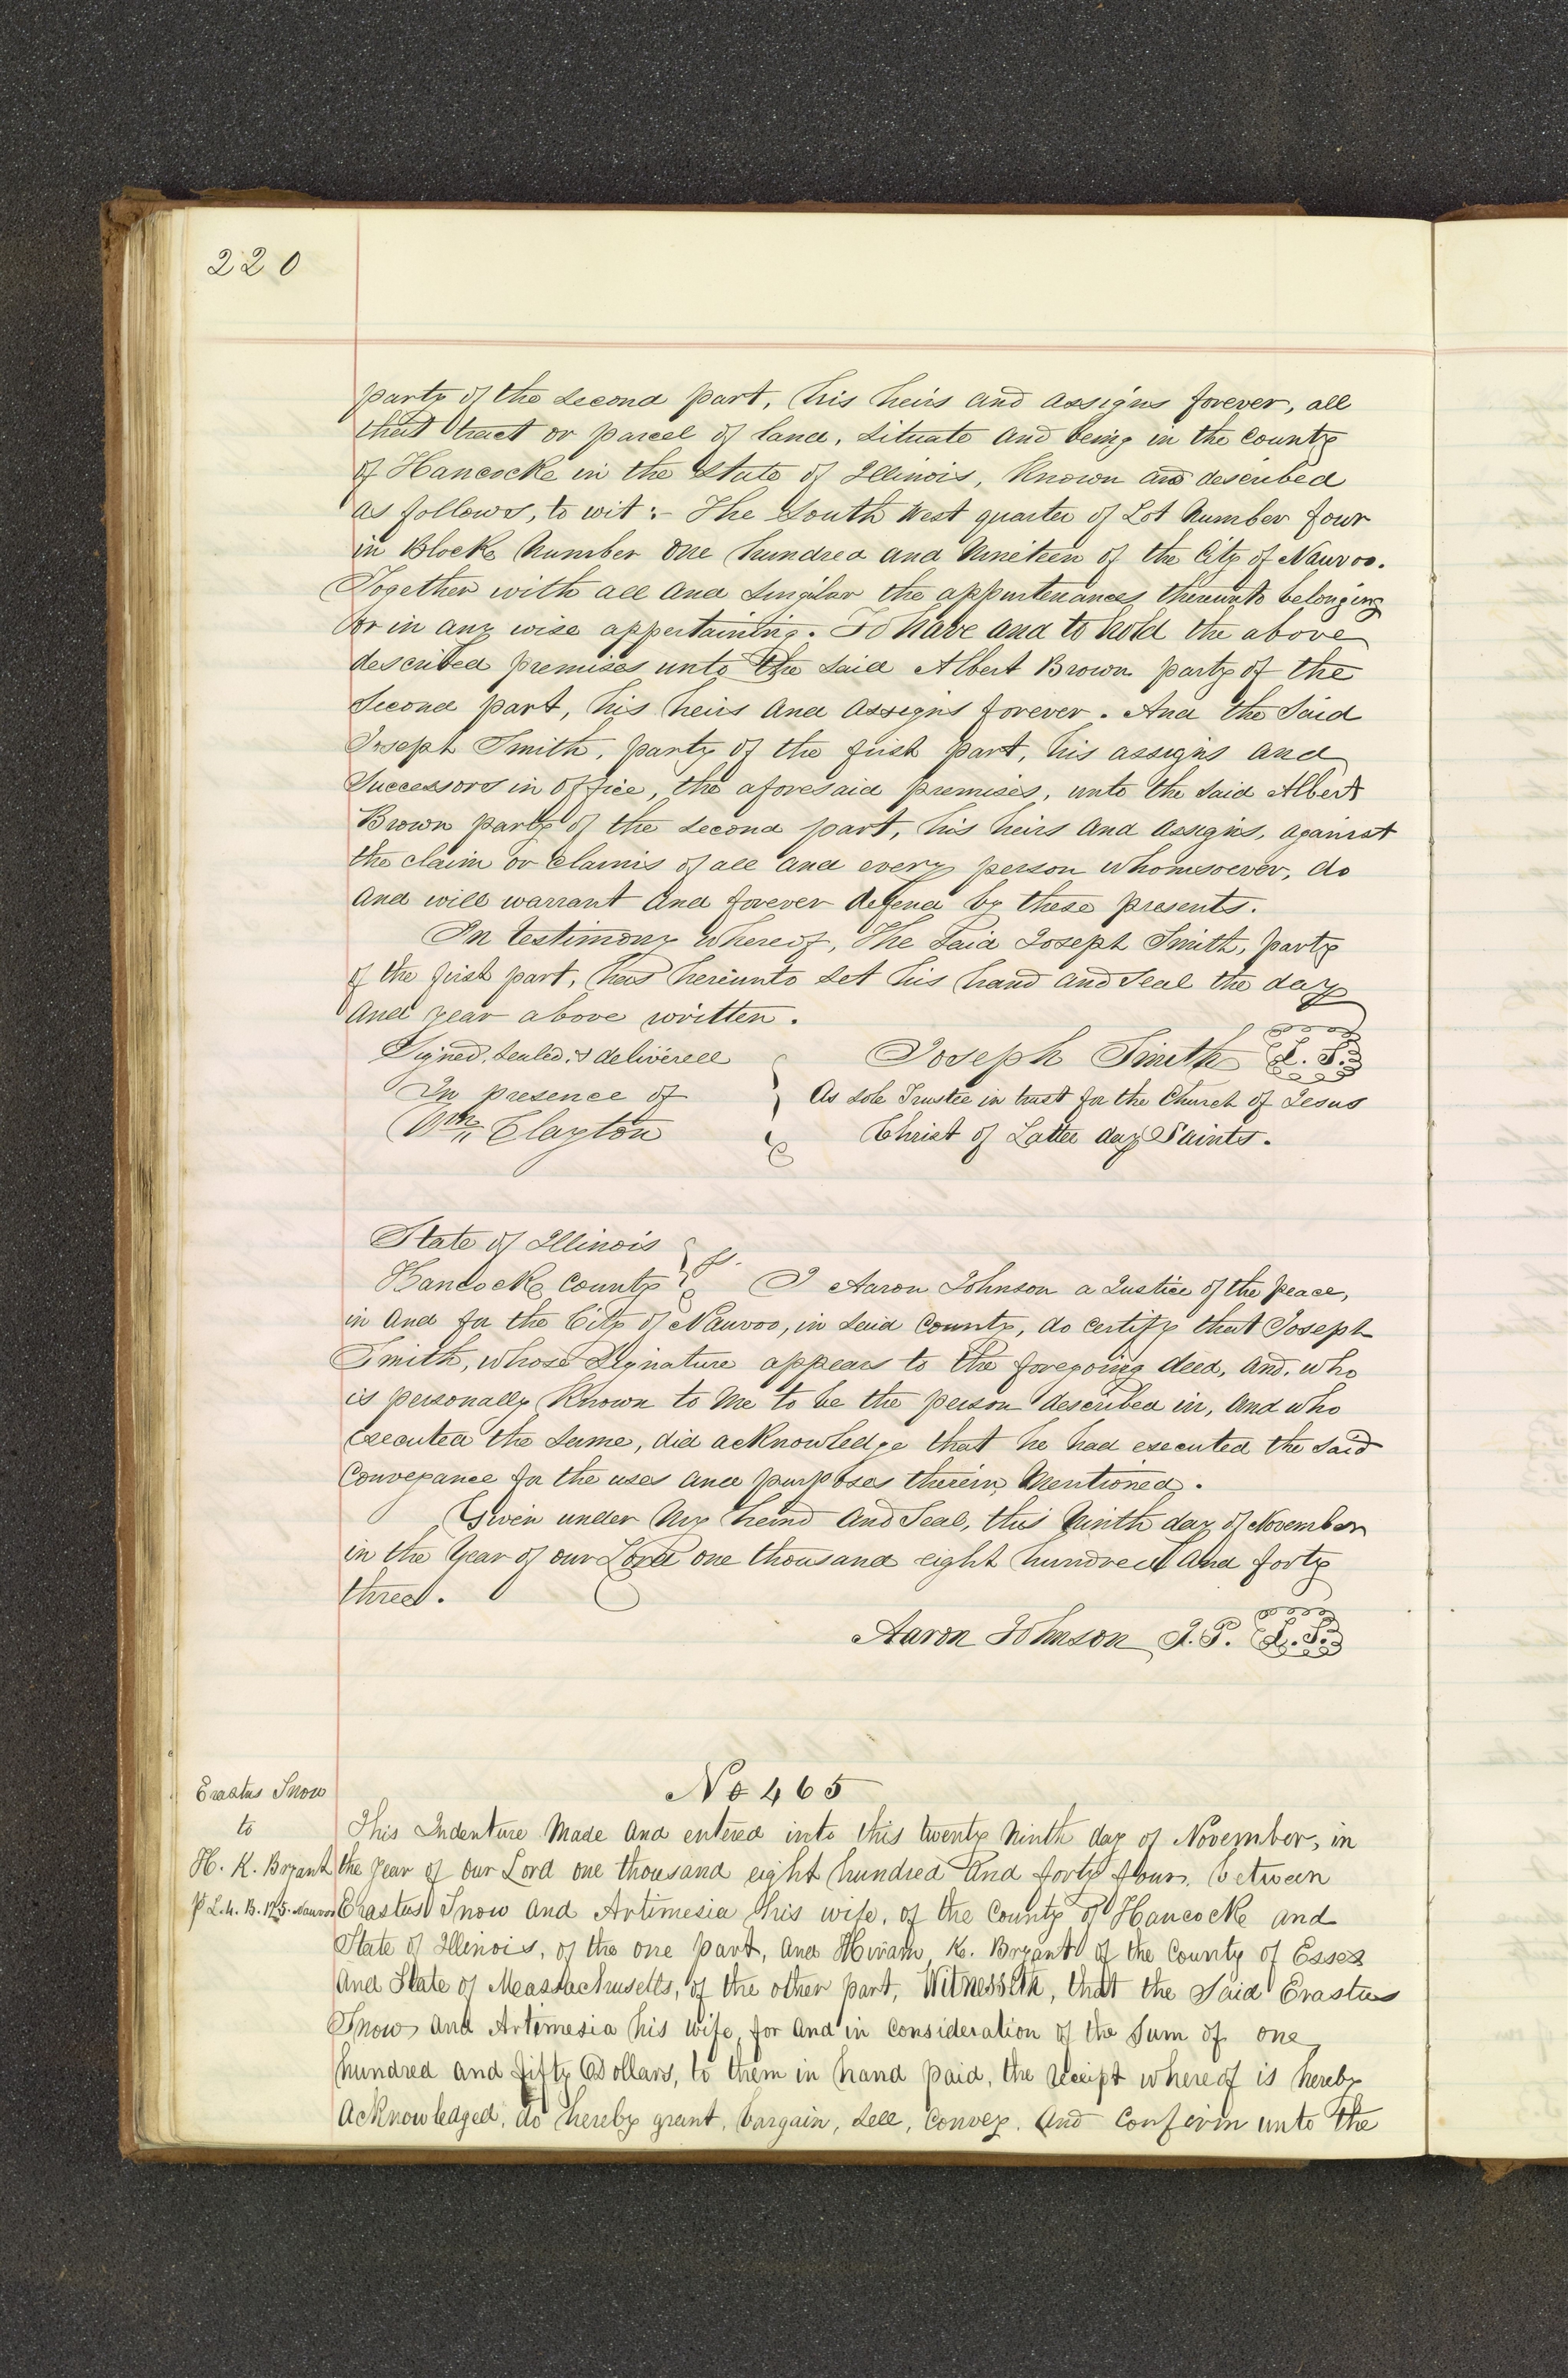 220
party of the second part, his heirs and assigns forever, all
that tract or parcel of land, situate and being in the County
of Hancock in the State of Illinois, Known and described
as follows, to wit:- The South West quarter of Lot Number four
in Block Number One hundred and Nineteen of the City of Nauvoo.
Together with all and singular the appurtenances thereunto belonging
or in any wise appertaining. To have and to hold the above
described premises unto the said Albert Brown party of the
Second part, his heirs and assigns forever. And the Said
Joseph Smith, party of the first part, his assigns and
Successors in Office, the aforesaid premises, unto the said Albert
Brown party of the second part, his heirs and assigns, against
the claim or claims of all and every person whomsoever, do
and will warrant and forever defend by these presents.
In testimony whereof, the said Joseph Smith, party
of the first part, has hereunto set his hand and Seal the day
and year above written.
Signed, Sealed, & delivered
In presence of
Wm Clayton
Joseph Smith L. S.
As sole Trustee in trust for the Church of Jesus
Christ of Latter day Saints.
State of Illinois
Hancock County } ss. I Aaron Johnson a Justice of the peace,
in and for the City of Nauvoo, in said County, do certify that Joseph
Smith, whose Signature appears to the foregoing deed, and who
is personally Known to me to be the person described in, and who
executed the same, did acknowledge that he had executed the said
Conveyance for the uses and purposes therein mentioned.
Given under my hand and Seal, this Ninth day of November
in the Year of our Lord one thousand eight hundred and forty
three.
Aaron Johnson J. P. L. S.
Erastus Snow
to
H. K. Bryant
P L. 4. B. 175. Nauvoo
No 465
This Indenture Made and entered into this twenty Ninth day of November, in
the year of our Lord one thousand eight hundred and forty four, between
Erastus Snow and Artimesia his wife, of the County of Hancock and
State of Illinois, of the one part, and Hiram K. Bryant of the County of Essex
and State of Massachusetts, of the other part, Witnesseth, that the Said Erastus
Snow and Artimesia his wife, for and in consideration of the Sum of one
hundred and fifty Dollars, to them in hand paid, the receipt whereof is hereby
Acknowledged, do hereby grant, bargain, sell, convey, and confirm unto the